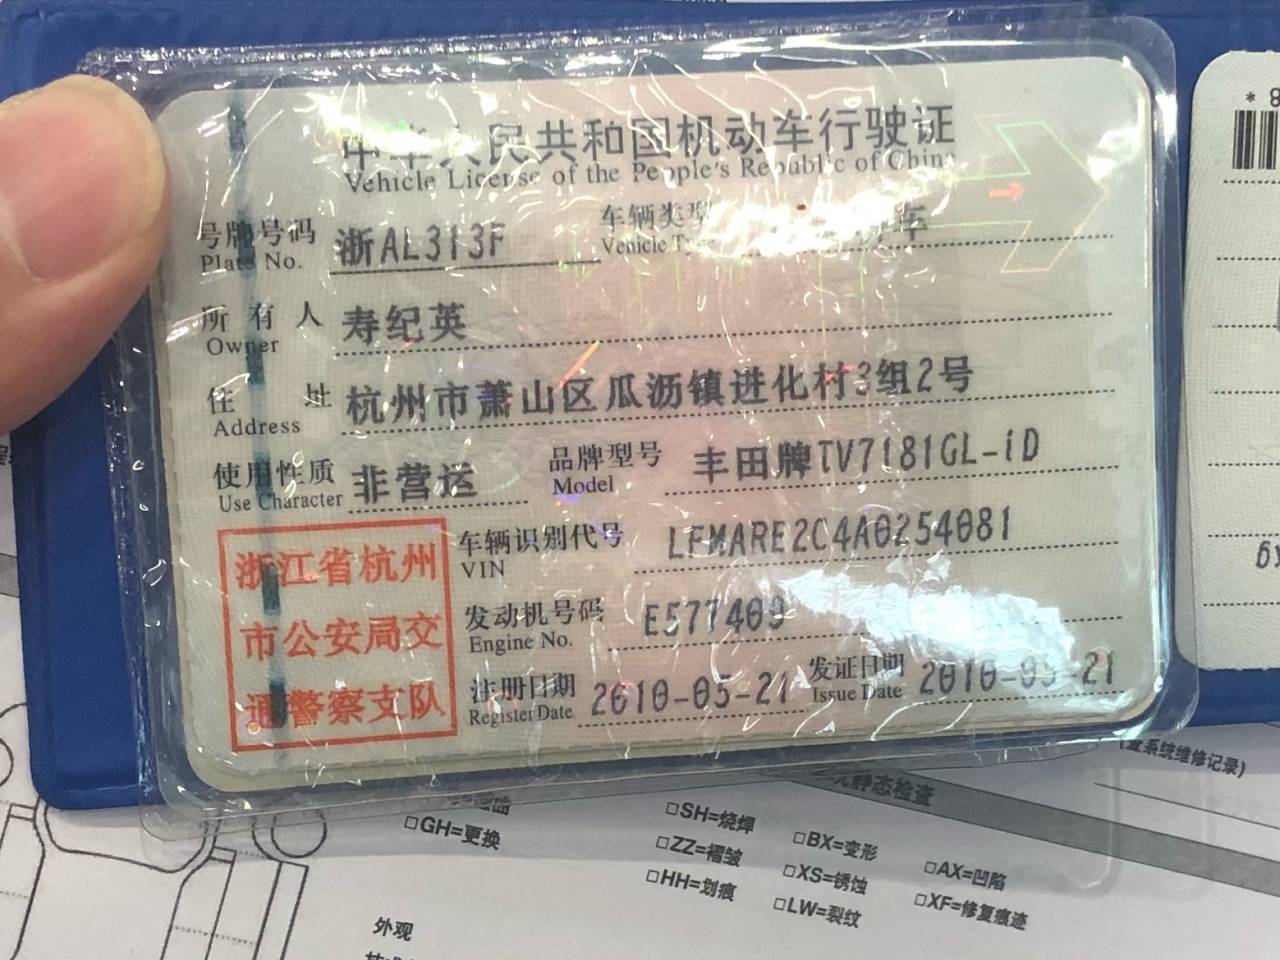 中华人民共和国机动车行驶证
Vehicle License of the People's Republic of China
号牌号码 浙AL313F 车辆类型
Plate No. Vehicle Type
所有人 寿纪英
Owner
住址 杭州市萧山区瓜沥镇进化村3组2号
Address
使用性质 非营运 品牌型号 丰田牌TV7181GL-iD
Use Character Model
浙江省杭州
市公安局交
通警察支队
车辆识别代号 LFMARE2C4A0254081
VIN
发动机号码 E577409
Engine No.
注册日期 2010-05-21 发证日期 2010-05-21
Register Date Issue Date
* 8
(查系统维修记录)
静态检查
□GH=更换
□SH=烧焊
□BX=变形
□AX=凹陷
□ZZ=褶皱
□XS=锈蚀
□XF=修复痕迹
□HH=划痕
□LW=裂纹
外观